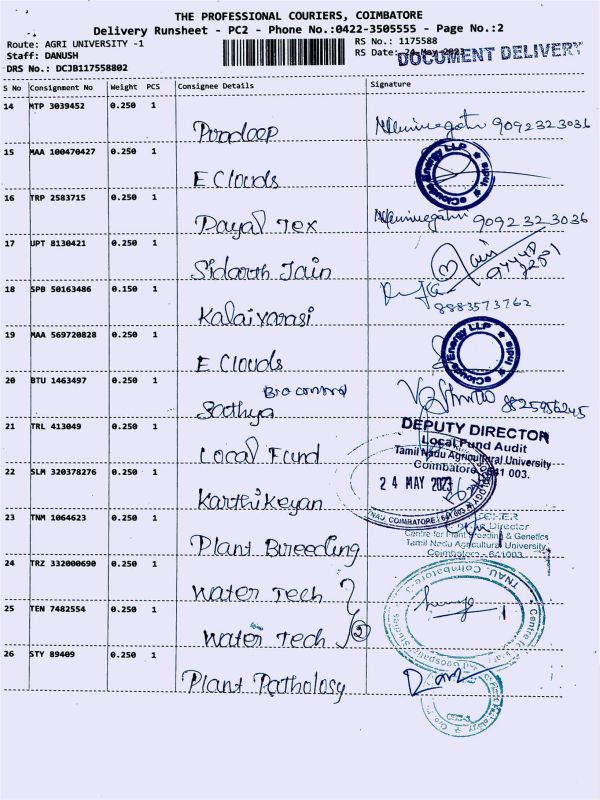 THE PROFESSIONAL COURIERS, COIMBATORE
Delivery Runsheet - PC2 - Phone No.:0422-3505555 - Page No.:2
Route: AGRI UNIVERSITY -1
RS No.: 1175588
Staff: DANUSH
RS Date: 24-May-2023
DOCUMENT DELIVERY
DRS No.: DCJB117558802
S No Consignment No Weight PCS Consignee Details Signature
14 MTP 3039452 0.250 1
Pradeep 9092323036
15 MAA 100470427 0.250 1
E Clouds
eClouds Energy LLP ★ India ★
16 TRP 2583715 0.250 1
Dayal Tex 9092323036
17 UPT 8130421 0.250 1
Sidaarth Jain
18 SPB 50163486 0.150 1
Kalaiyarasi 8883573762
19 MAA 569720828 0.250 1
E Clouds
eClouds Energy LLP ★ India ★
20 BTU 1463497 0.250 1
Bio control
Sathya 8825956245
21 TRL 413049 0.250 1
Local Fund
DEPUTY DIRECTOR
Local Fund Audit
Tamil Nadu Agricultural University
Coimbatore - 641 003.
22 SLM 320378276 0.250 1
24 MAY 2023
Karthikeyan
TNAU, COIMBATORE - 641 003
23 TNM 1064623 0.250 1
Plant Breeding
Director
Centre for Plant Breeding & Genetics
Tamil Nadu Agricultural University
Coimbatore - 641003
24 TRZ 332000690 0.250 1
Water Tech
TNAU, Coimbatore-3
25 TEN 7482554 0.250 1
Water Tech 2
26 STY 89409 0.250 1
Plant Pathology